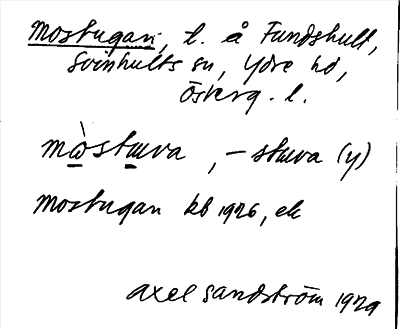 Mostugan, t. å Fundshult,
Svinhults sn, Ydre hd,
Österg. l.
mὼstɯva, – stɯva (y)
Mostugan kb 1926, ek
Axel Sandström 1929